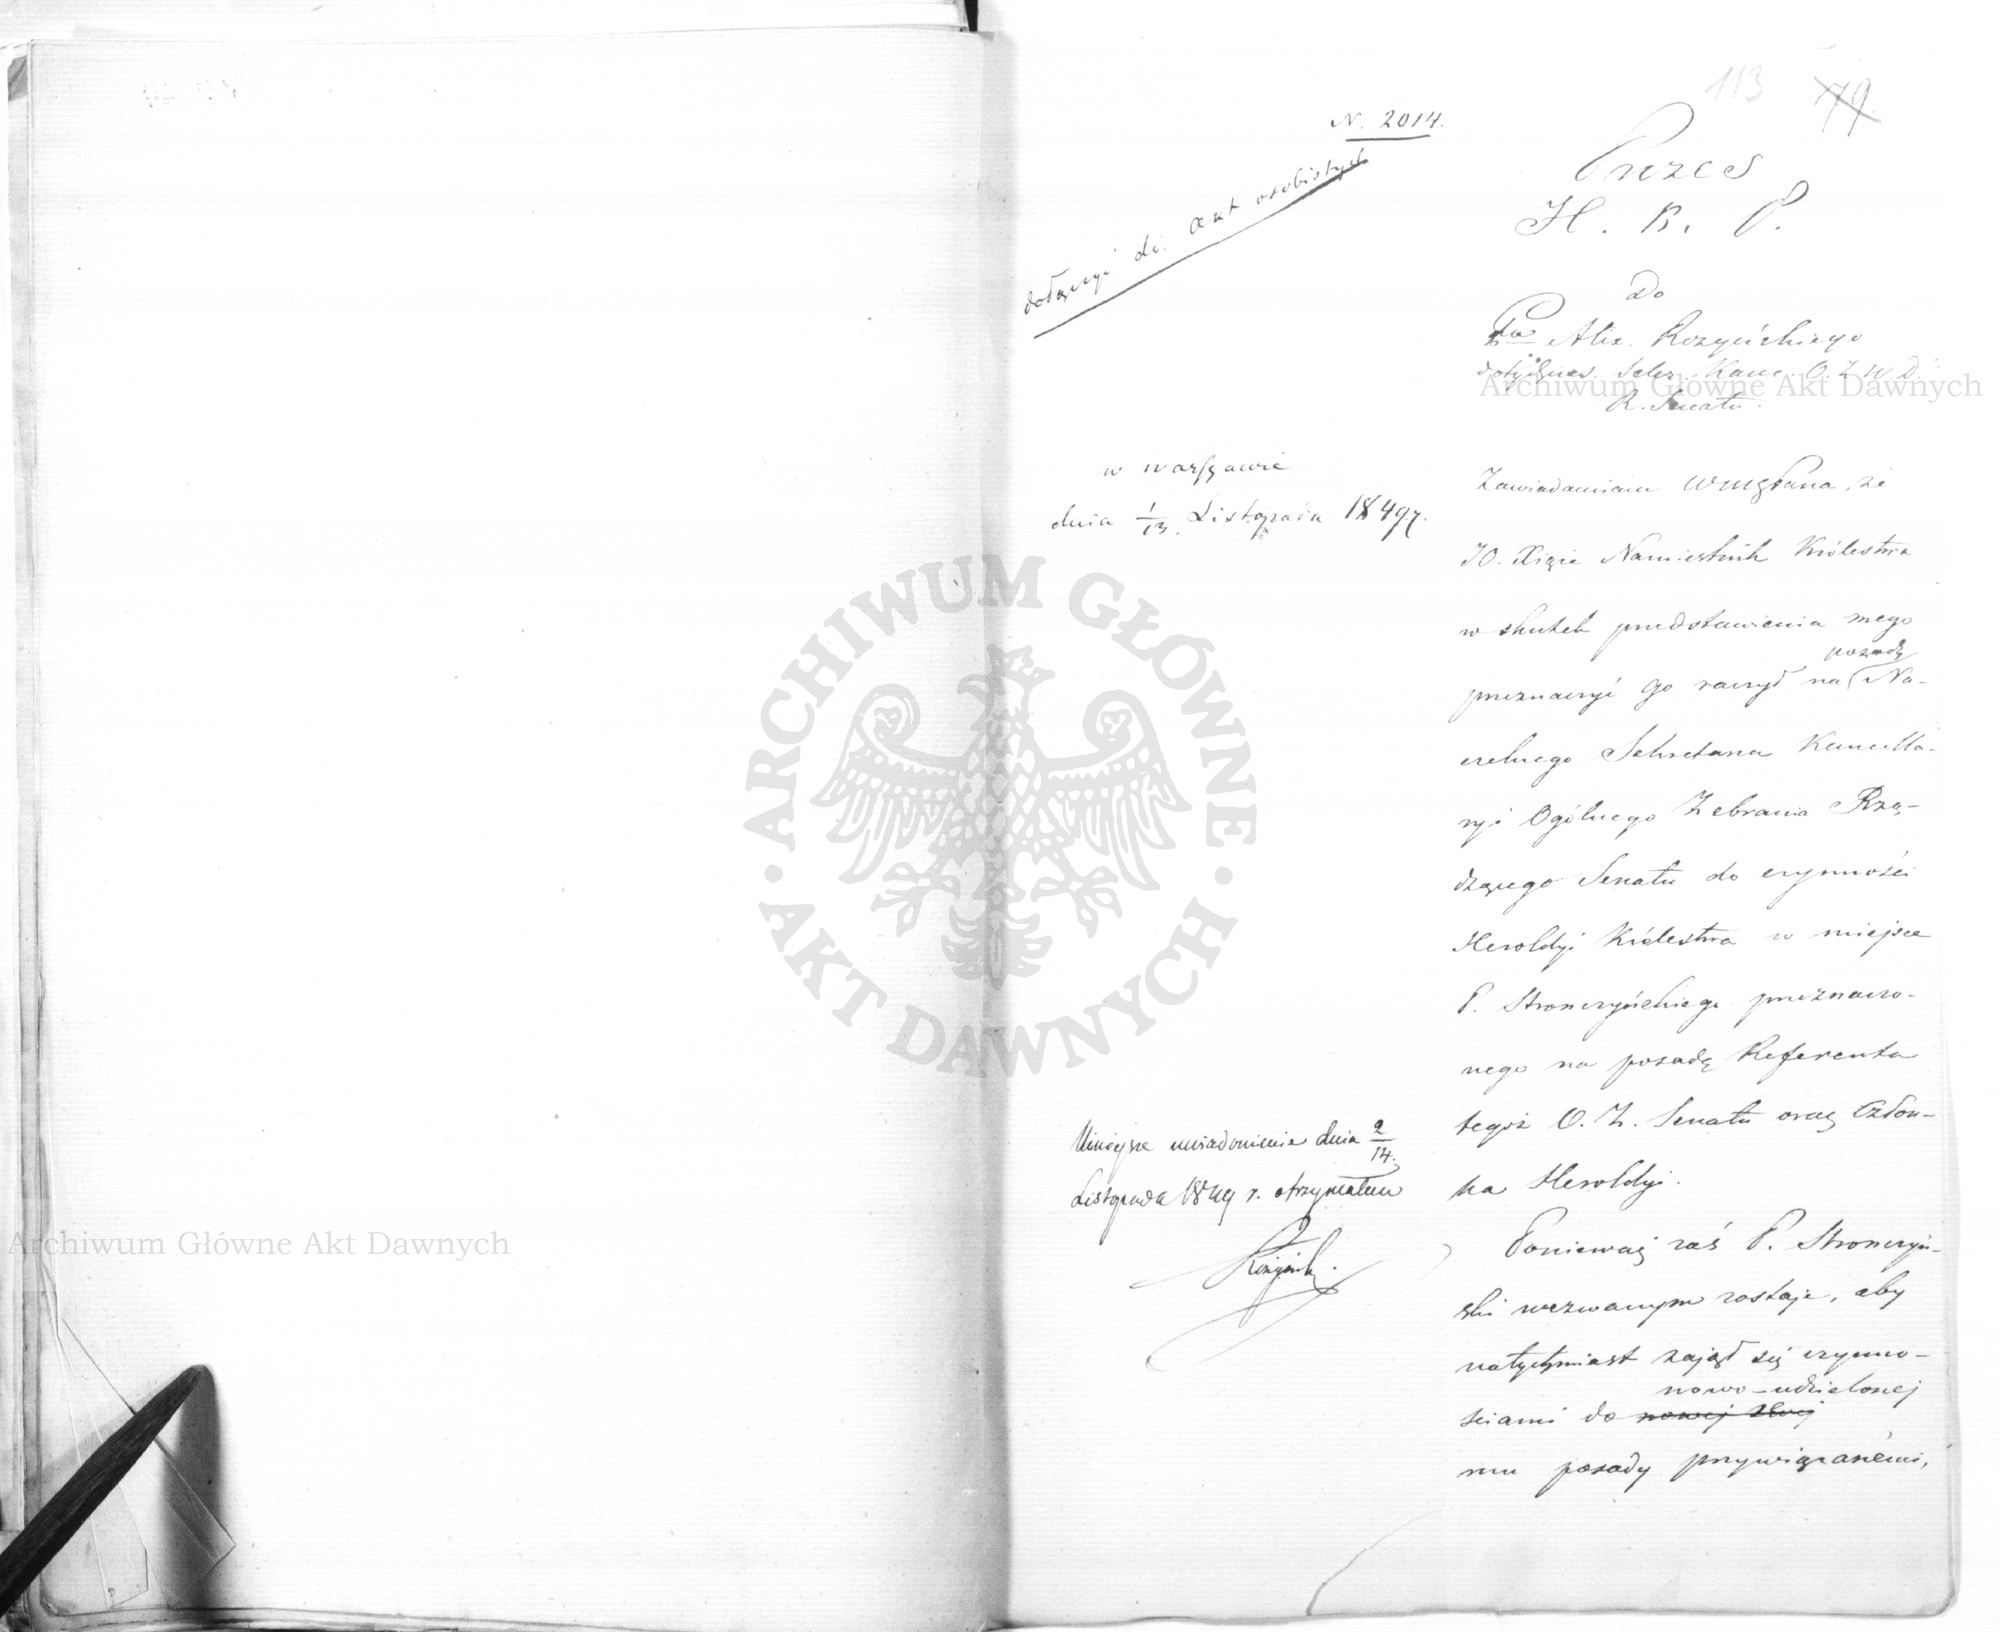 113 79
N. 2014.
dołączyć do akt osobistych
Prezes
H. K. P.
Do
Pa Alex. Rożyńskiego
Sekr. Kanc. O. Z. W. D.
R. Senatu.
w Warszawie
dnia 1/13. Listopada 1849 r.
Zawiadamiam WMgPana, że
JO. Xiąże Namiestnik Królestwa
w skutek przedstawienia mego
posadę
przeznaczyć go raczył na Na-
czelnego Sekretarza Kancella-
ryi Ogólnego Zebrania Rzą-
dzącego Senatu do czynności
Heroldyi Królestwa w miejsce
P. Stronczyńskiego przeznaczo-
nego na posadę Referenta
tegoż O. Z. Senatu oraz Człon-
ka Heroldyi.
Ponieważ zaś P. Stronczyń-
ski wezwanym zostaje, aby
natychmiast zajął się czynno-
nowo-udzielonej
ściami do nowej
mu posady przywiązanemi,
Niniejsze uwiadomienie dnia 2/14.
Listopada 1849 r. otrzymałem
Archiwum Główne Akt Dawnych
ARCHIWUM GŁÓWNE · AKT DAWNYCH ·
Archiwum Główne Akt Dawnych